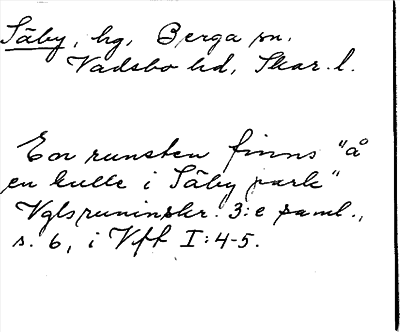 Säby, hg, Berga sn.
Vadsbo hd, Skar. l.
En runsten finns "å
en kulle i Säby park"
Vgls runinskr. 3:e saml.,
s. 6, i Vff I:4-5.